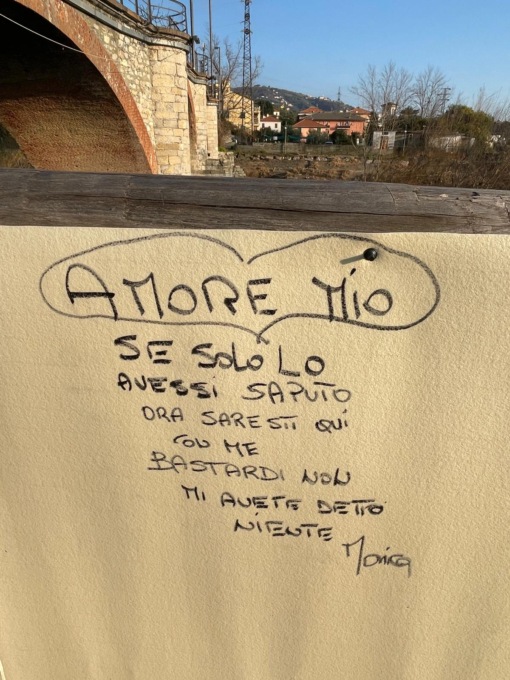 AMORE MIO
SE SOLO LO
AVESSI SAPUTO
ORA SARESTI QUÍ
CON ME
BASTARDI NON
MI AVETE DETTO
NIENTE
Monica